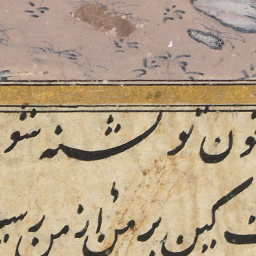 ون تو تشنه شو
کین بر من از من رسی